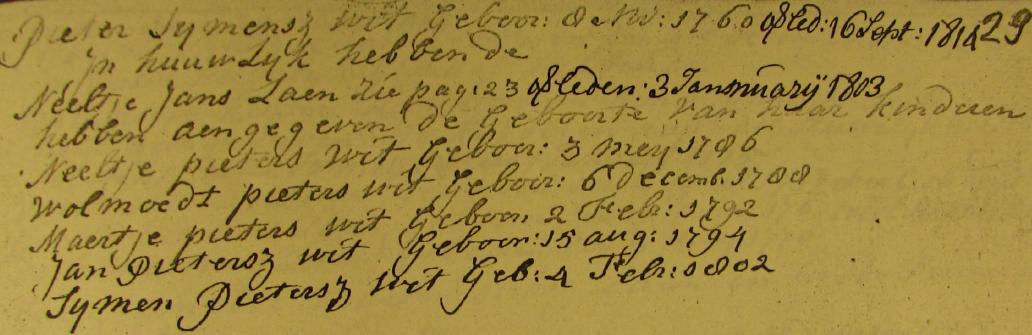 Pieter Symensz wit Geboor: 8 Nov: 1760 ofled: 16 Sept: 1814 29
Jn huuwlyk hebbende
Neeltje Jans Laen zie pag: 23 ofleden: 3 Jannuarij 1803
hebben aengegeven de Geboorte van haar kinderen
Neeltje pieters wit Geboor: 3 mey 1786
wolmoedt pieters wit Geboir: 6 decemb. 1788
Maertje pieters wit Geboor, 2 Feb: 1792
Jan Pietersz wit Geboor: 15 aug: 1794
Symen Pietersz wit Geb: 4 Feb: 1802